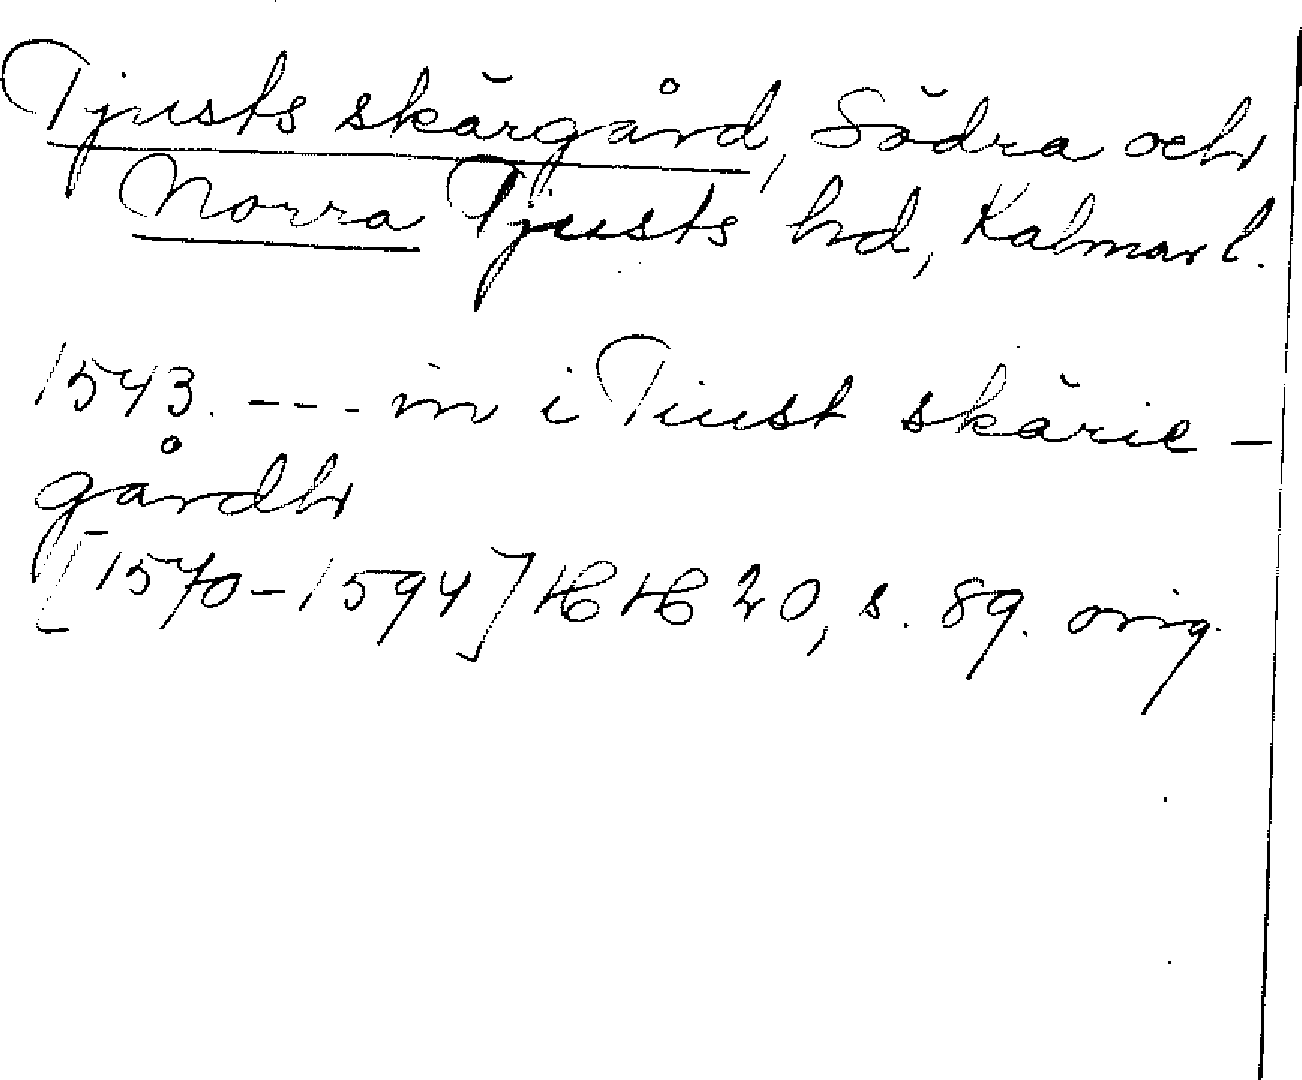 Tjusts skärgård, Södra och
Norra Tjusts hd, Kalmar l.
1543. --- in i Tiust skärie-
gårdh
[1570-1594] HH 20, s. 89. orig.